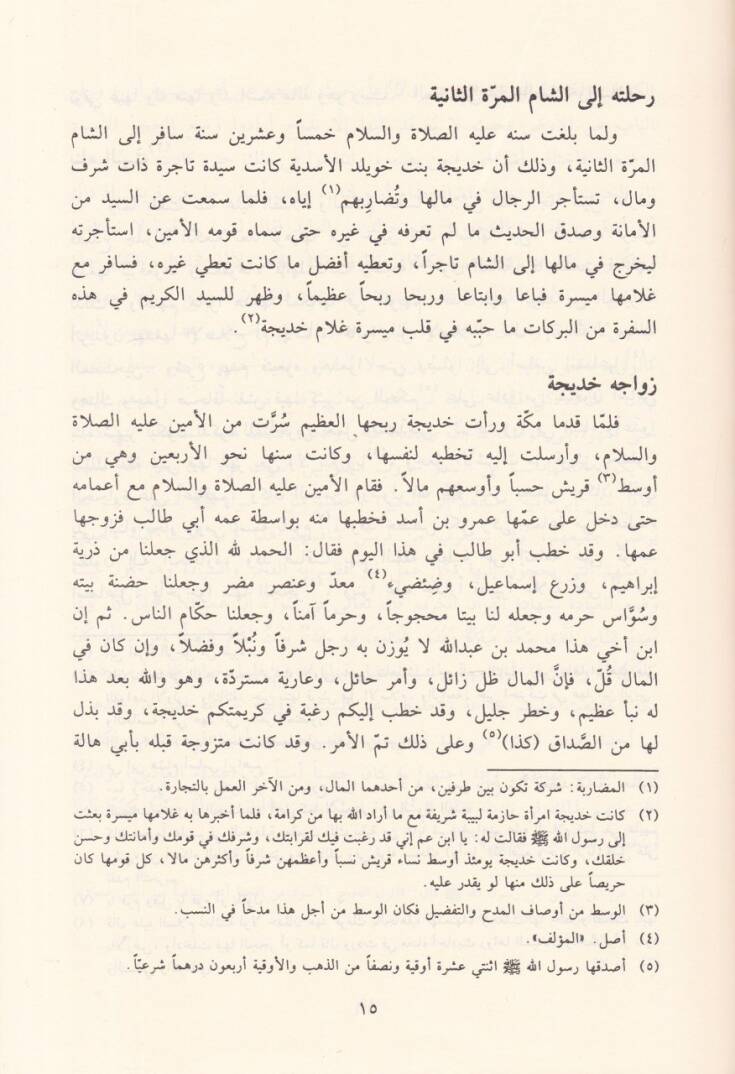 رحلته إلى الشام المرّة الثانية
ولما بلغت سنه عليه الصلاة والسلام خمساً وعشرين سنة سافر إلى الشام
المرّة الثانية، وذلك أن خديجة بنت خويلد الأسدية كانت سيدة تاجرة ذات شرف
ومال، تستأجر الرجال في مالها وتُضارِبهم(١) إياه، فلما سمعت عن السيد من
الأمانة وصدق الحديث ما لم تعرفه في غيره حتى سماه قومه الأمين، استأجرته
ليخرج في مالها إلى الشام تاجراً، وتعطيه أفضل ما كانت تعطي غيره، فسافر مع
غلامها ميسرة فباعا وابتاعا وربحا ربحاً عظيماً، وظهر للسيد الكريم في هذه
السفرة من البركات ما حبّبه في قلب ميسرة غلام خديجة(٢).
زواجه خديجة
فلمّا قدما مكّة ورأت خديجة ربحها العظيم سُرَّت من الأمين عليه الصلاة
والسلام، وأرسلت إليه تخطبه لنفسها، وكانت سنها نحو الأربعين وهي من
أوسط(٣) قريش حسباً وأوسعهم مالاً. فقام الأمين عليه الصلاة والسلام مع أعمامه
حتى دخل على عمّها عمرو بن أسد فخطبها منه بواسطة عمه أبي طالب فزوجها
عمها. وقد خطب أبو طالب في هذا اليوم فقال: الحمد لله الذي جعلنا من ذرية
إبراهيم، وزرع إسماعيل، وضِئضيء(٤) معدّ وعنصر مضر وجعلنا حضنة بيته
وسُوَّاس حرمه وجعله لنا بيتا محجوجاً، وحرماً آمناً، وجعلنا حكّام الناس. ثم إن
ابن أخي هذا محمد بن عبدالله لا يُوزن به رجل شرفاً ونُبْلاً وفضلاً، وإن كان في
المال قُلّ، فإنَّ المال ظل زائل، وأمر حائل، وعارية مستردّة، وهو والله بعد هذا
له نبأ عظيم، وخطر جليل، وقد خطب إليكم رغبة في كريمتكم خديجة، وقد بذل
لها من الصَّداق (كذا)(٥) وعلى ذلك تمّ الأمر. وقد كانت متزوجة قبله بأبي هالة
(١) المضاربة: شركة تكون بين طرفين، من أحدهما المال، ومن الآخر العمل بالتجارة.
(٢) كانت خديجة امرأة حازمة لبيبة شريفة مع ما أراد الله بها من كرامة، فلما أخبرها به غلامها ميسرة بعثت
إلى رسول الله ﷺ فقالت له: يا ابن عم إني قد رغبت فيك لقرابتك، وشرفك في قومك وأمانتك وحسن
خلقك، وكانت خديجة يومئذ أوسط نساء قريش نسباً وأعظمهن شرفاً وأكثرهن مالا، كل قومها كان
حريصاً على ذلك منها لو يقدر عليه.
(٣) الوسط من أوصاف المدح والتفضيل فكان الوسط من أجل هذا مدحاً في النسب.
(٤) أصل. «المؤلف».
(٥) أصدقها رسول الله ﷺ اثنتي عشرة أوقية ونصفاً من الذهب والأوقية أربعون درهماً شرعيّاً.
١٥